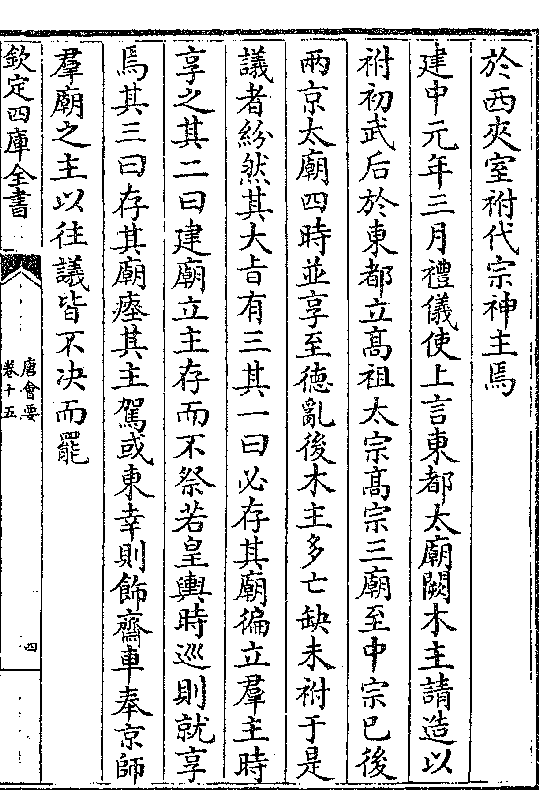 於西夾室祔代宗神主焉
建中元年三月禮儀使上言東都太廟闕木主請造以
祔初武后於東都立髙祖太宗髙宗三廟至中宗已後
兩京太廟四時並享至德亂後木主多亡缺未祔于是
議者紛然其大旨有三其一曰必存其廟徧立羣主時
享之其二曰建廟立主存而不祭若皇輿時巡則就享
焉其三曰存其廟瘞其主駕或東幸則飾齋車奉京師
羣廟之主以往議皆不决而罷
欽定四庫全書
唐會要
卷十五
四